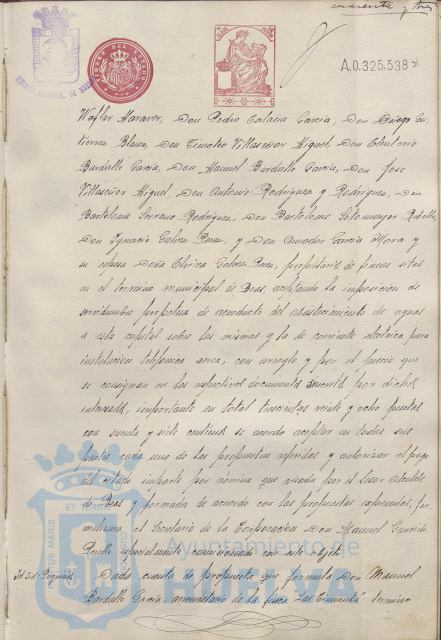 cuarenta y tres
A.0.325.538
Maraver, Don Pedro Calana García, Don Diego Gu-
tierrez Blanco, Don Timoteo Villaseñor Miguel, Don Eleuterio
Bardallo García, Don Manuel Bardallo García, Don Jose
Villaseñor Miguel, Don Antonio Rodriguez y Rodriguez, Don
Bartolome Serrano Rodriguez, Don Bartolome Sotomayor Rebollo,
Don Ignacio Galvez Perez, y Don Amador García Mora y
su esposa Doña Elvira Galvez Perez, propietarios de fincas sitas
en el término municipal de Beas, aceptando la imposicion de
servidumbre perpetua de acueducto del abastecimiento de aguas
a esta capital sobre las mismas y la de corriente electrica para
instalacion telefonica aerea, con arreglo y por el precio que
se consignan en los respectivos documentos suscritos por dichos
interesados, importante en total trescientas veinte y ocho pesetas
con sesenta y siete centimos se acordo aceptar en todas sus
partes cada una de las propuestas referidas y autorizar el pago
del citado importe por nómina que visada por el Señor Alcalde
de Beas y formada de acuerdo con las propuestas expresadas, for-
malizara el Secretario de la Corporacion Don Manuel Garrido
Perello especialmente comisionado con este objeto.
Id. id. Dada cuenta de propuesta que formula Don Manuel
Bardallo García arrendatario de la finca "Las Cincuenta" termino
Ayuntamiento de
HUELVA